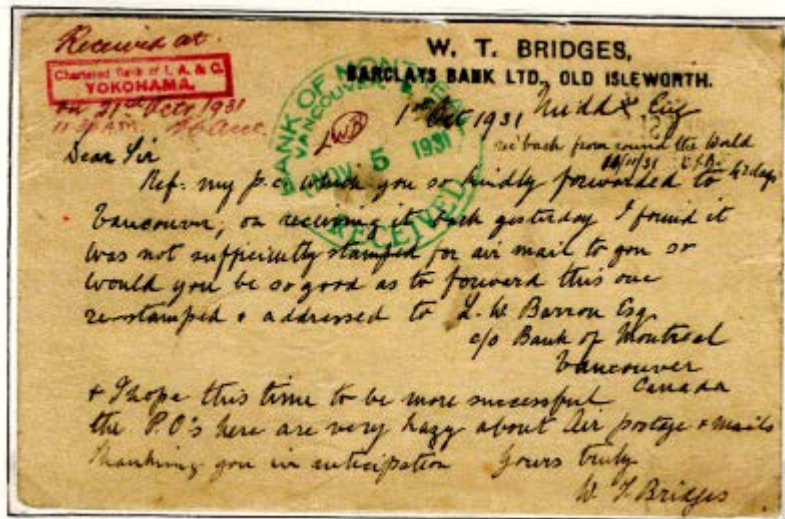 Received at
Chartered Bank of I. A. & C.
YOKOHAMA.
on 21st Octr 1931
11-30 AM.
W. T. BRIDGES,
BARCLAYS BANK LTD., OLD ISLEWORTH.
1st Oct 1931 Middx Eng
BANK OF MONTREAL
VANCOUVER
NOV 5 1931
RECEIVED
LWB
rec' back from round the World
42 days
Dear Sir
Ref: my p.c. which you so kindly forwarded to
Vancouver; on receiving it back yesterday I found it
was not sufficiently stamped for air mail to you so
would you be so good as to forward this one
re-stamped & addressed to L. W. Barron Esq
c/o Bank of Montreal
Vancouver
Canada
& I hope this time to be more successful
the P.O's here are very hazy about Air postage & mails
Thanking you in anticipation Yours truly
W. T. Bridges